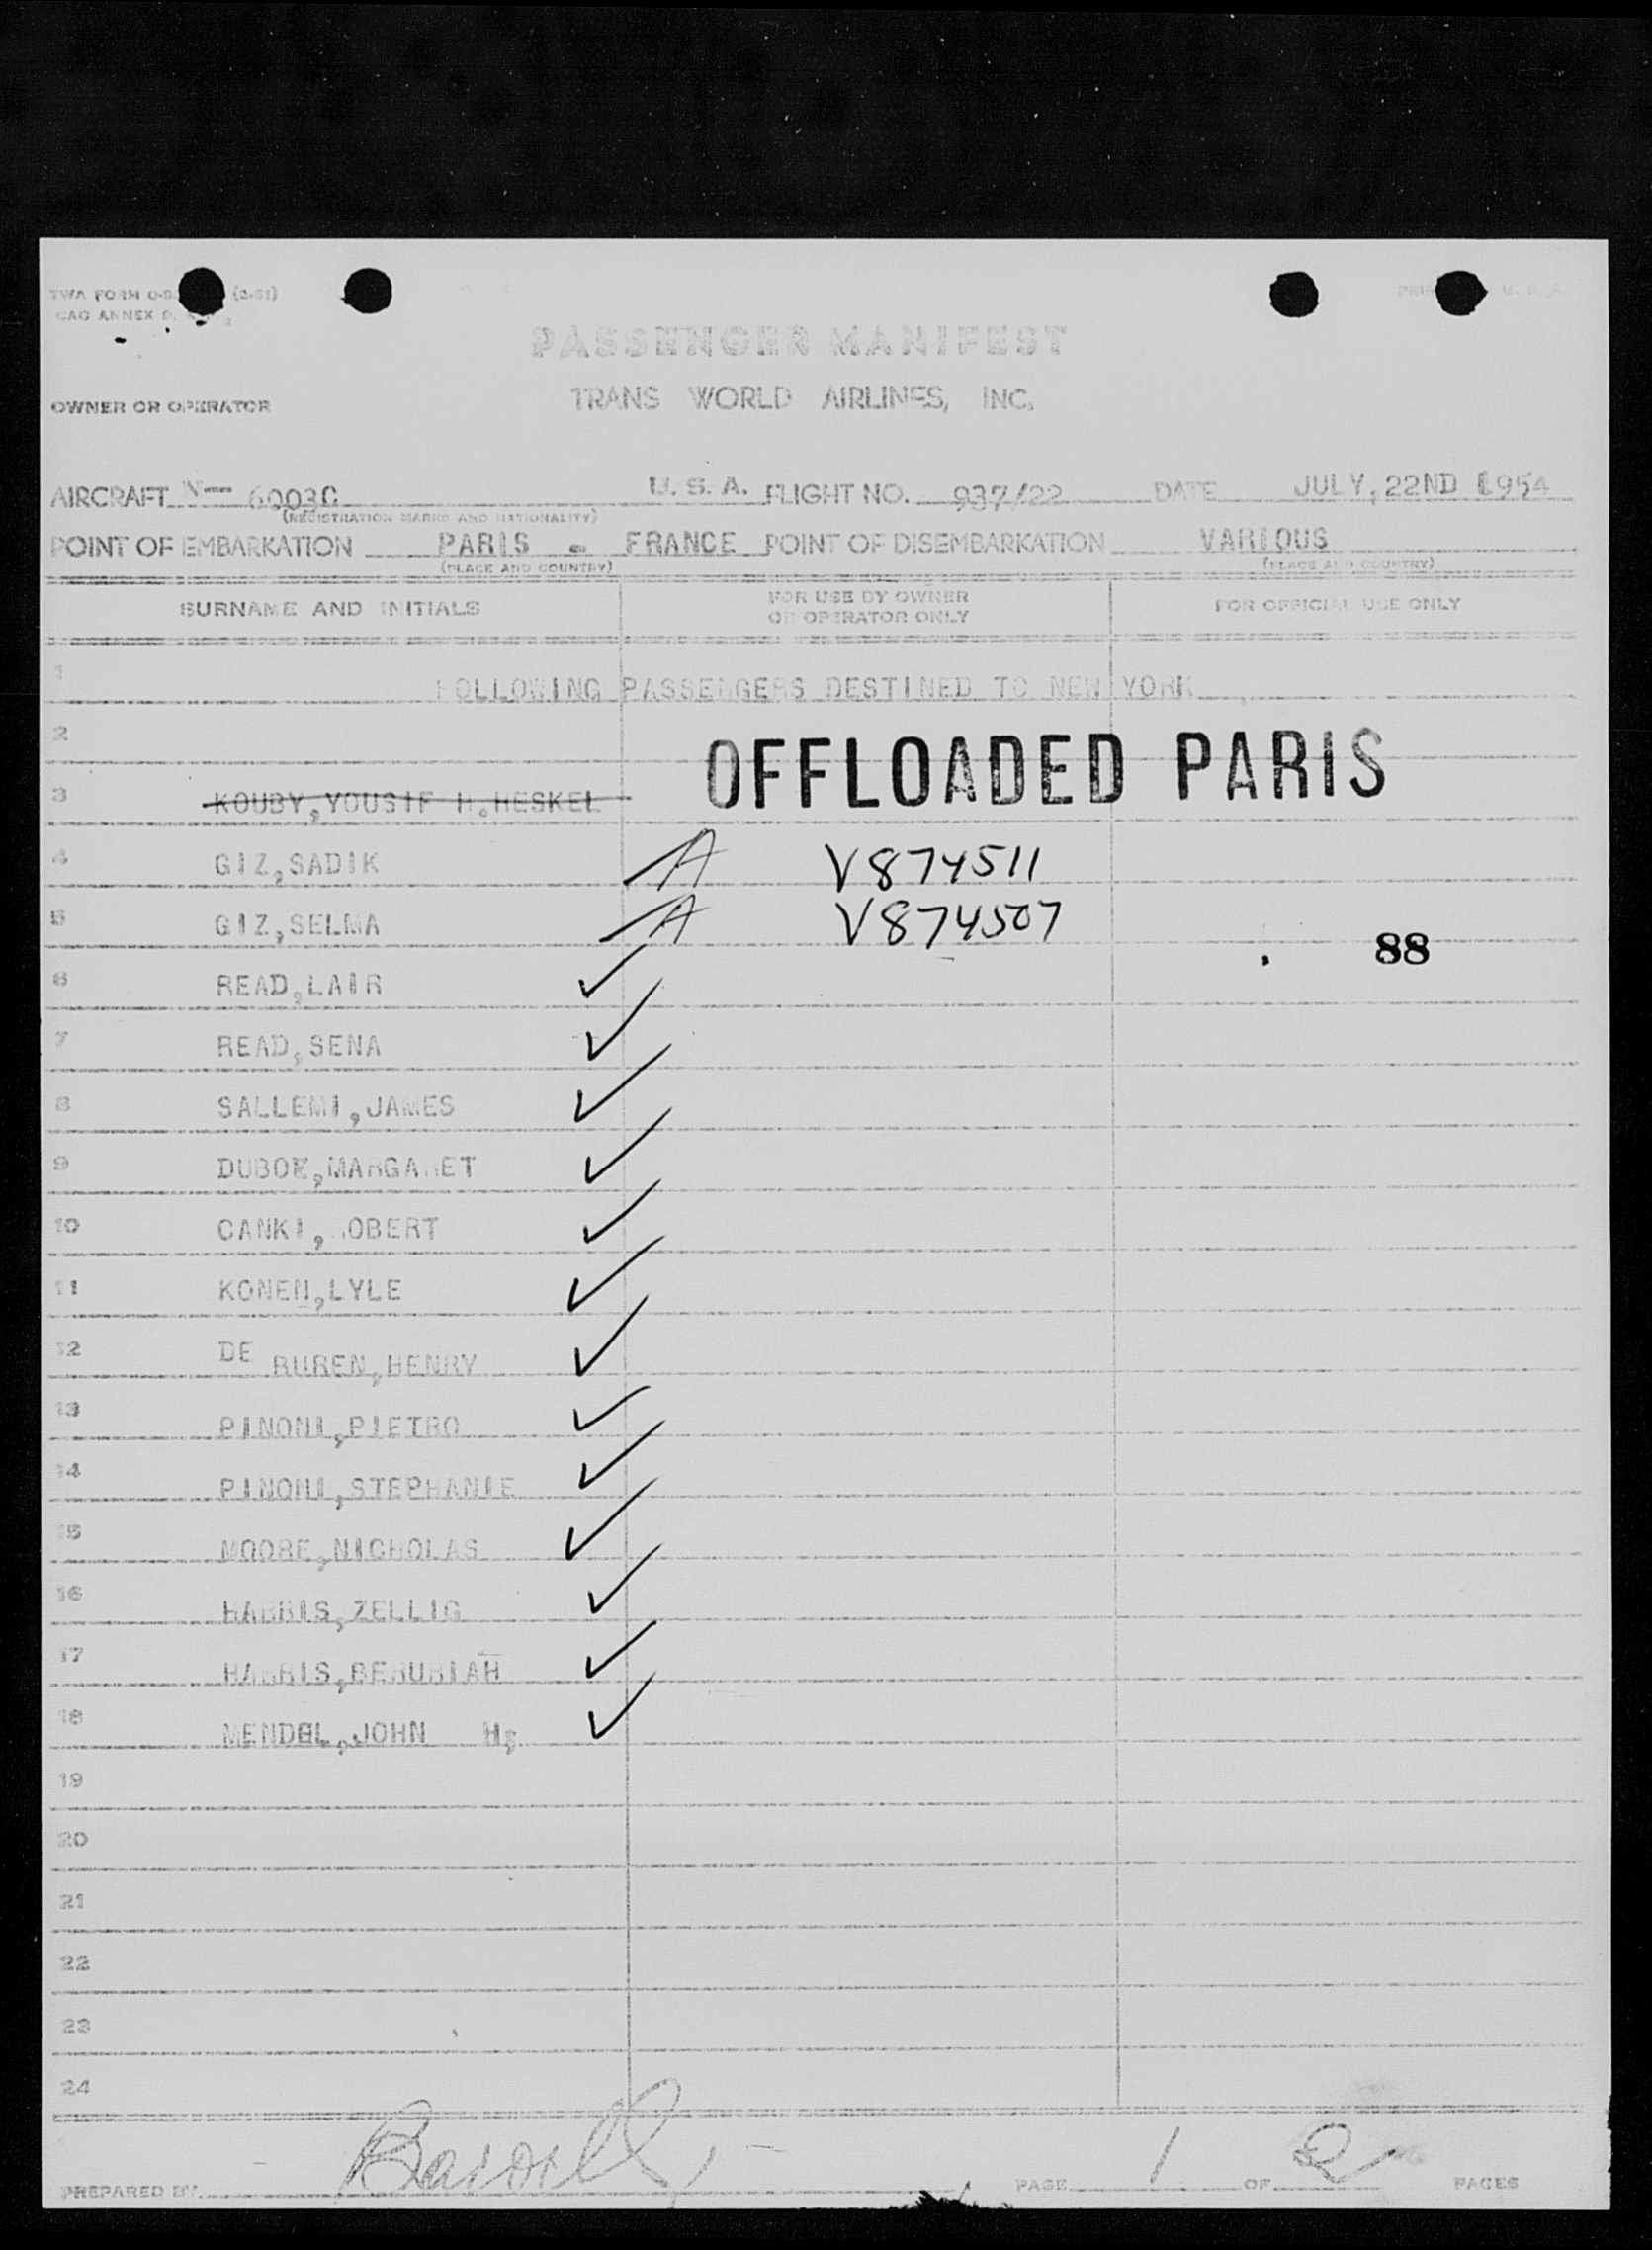 TWA FORM (3-51)
CAO ANNEX 9,
PASSENGER MANIFEST
OWNER OR OPERATOR TRANS WORLD AIRLINES, INC.
AIRCRAFT N— 6003C U. S. A. FLIGHT NO. 937/22 DATE JULY, 22ND 1954
(REGISTRATION MARKS AND NATIONALITY)
POINT OF EMBARKATION PARIS - FRANCE POINT OF DISEMBARKATION VARIOUS
(PLACE AND COUNTRY) (PLACE AND COUNTRY)
SURNAME AND INITIALS FOR USE BY OWNER OR OPERATOR ONLY FOR OFFICIAL USE ONLY
1 FOLLOWING PASSENGERS DESTINED TO NEW YORK
2
3 KOUBY,YOUSIF H.HESKEL OFFLOADED PARIS
4 GIZ,SADIK A V874511
5 GIZ,SELMA A V874507 88
6 READ,LAIR
7 READ,SENA
8 SALLEMI,JAMES
9 DUBOE,MARGARET
10 CANKI, ROBERT
11 KONEN,LYLE
12 DE BUREN,HENRY
13 PINONI,PIETRO
14 PINONI,STEPHANIE
15 MOORE,NICHOLAS
16 HARRIS,ZELLIG
17 HARRIS,BERURIAH
18 MENDEL,JOHN H;
19
20
21
22
23
24
PREPARED BY PAGE 1 OF 2 PAGES